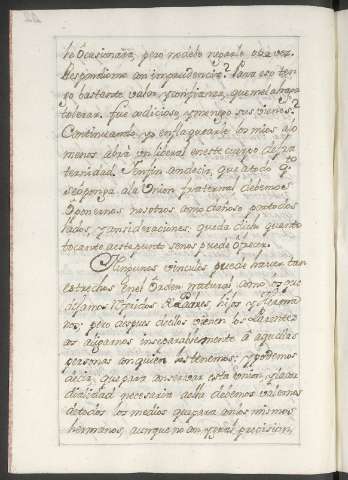 le Ocasionaria, pero no debo negarle otra vez.
Respondióme con imprudencia? Para eso ten-
go bastante valor, y confianza, que me lo hara
tolerar. fue codicioso, y me nego sus vienes?
Continuando yo en flaquearle los mios, a lo
menos abrá un liberal en este cuerpo de fra-
ternidad. Enfin con decir, que a todo q.to
se oponga a la Union fraternal debemos
Oponernos nosotros como dañoso por todos
lados, y consideraciones; queda dicho quanto
tocante a este punto se nos puede ofrecer.
Ningunos vinculos puede haver tan
estrechos En el Orden natural, como los que
de Padres, hijos y Herma
nos; pero despues de ellos vienen los Parentez-
cos a ligarnos inseparablemente á aquellas
personas con quien los tenemos; y podemos
decir, que para conservar esta union, y la cor
dialidad necesaria a ella debemos valernos
de todos los medios que para con los mismos
hermanos, aunque no con igual precision,